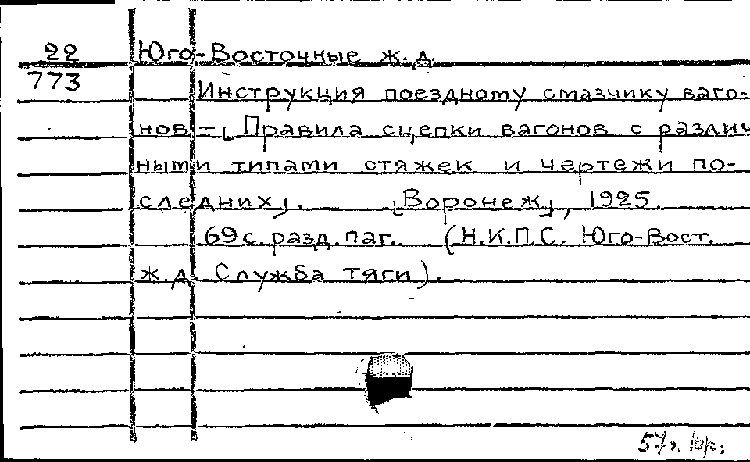 22
773
Юго-Восточные ж.д.
Инструкция поездному смазчику ваго-
нов - [Правила сцепки вагонов с различ
ными типами стяжек и чертежи по-
следних]. [Воронеж], 1925.
69 с. разд. паг. (Н.К.П.С. Юго-Вост.
ж.д. Служба тяги).
57г.